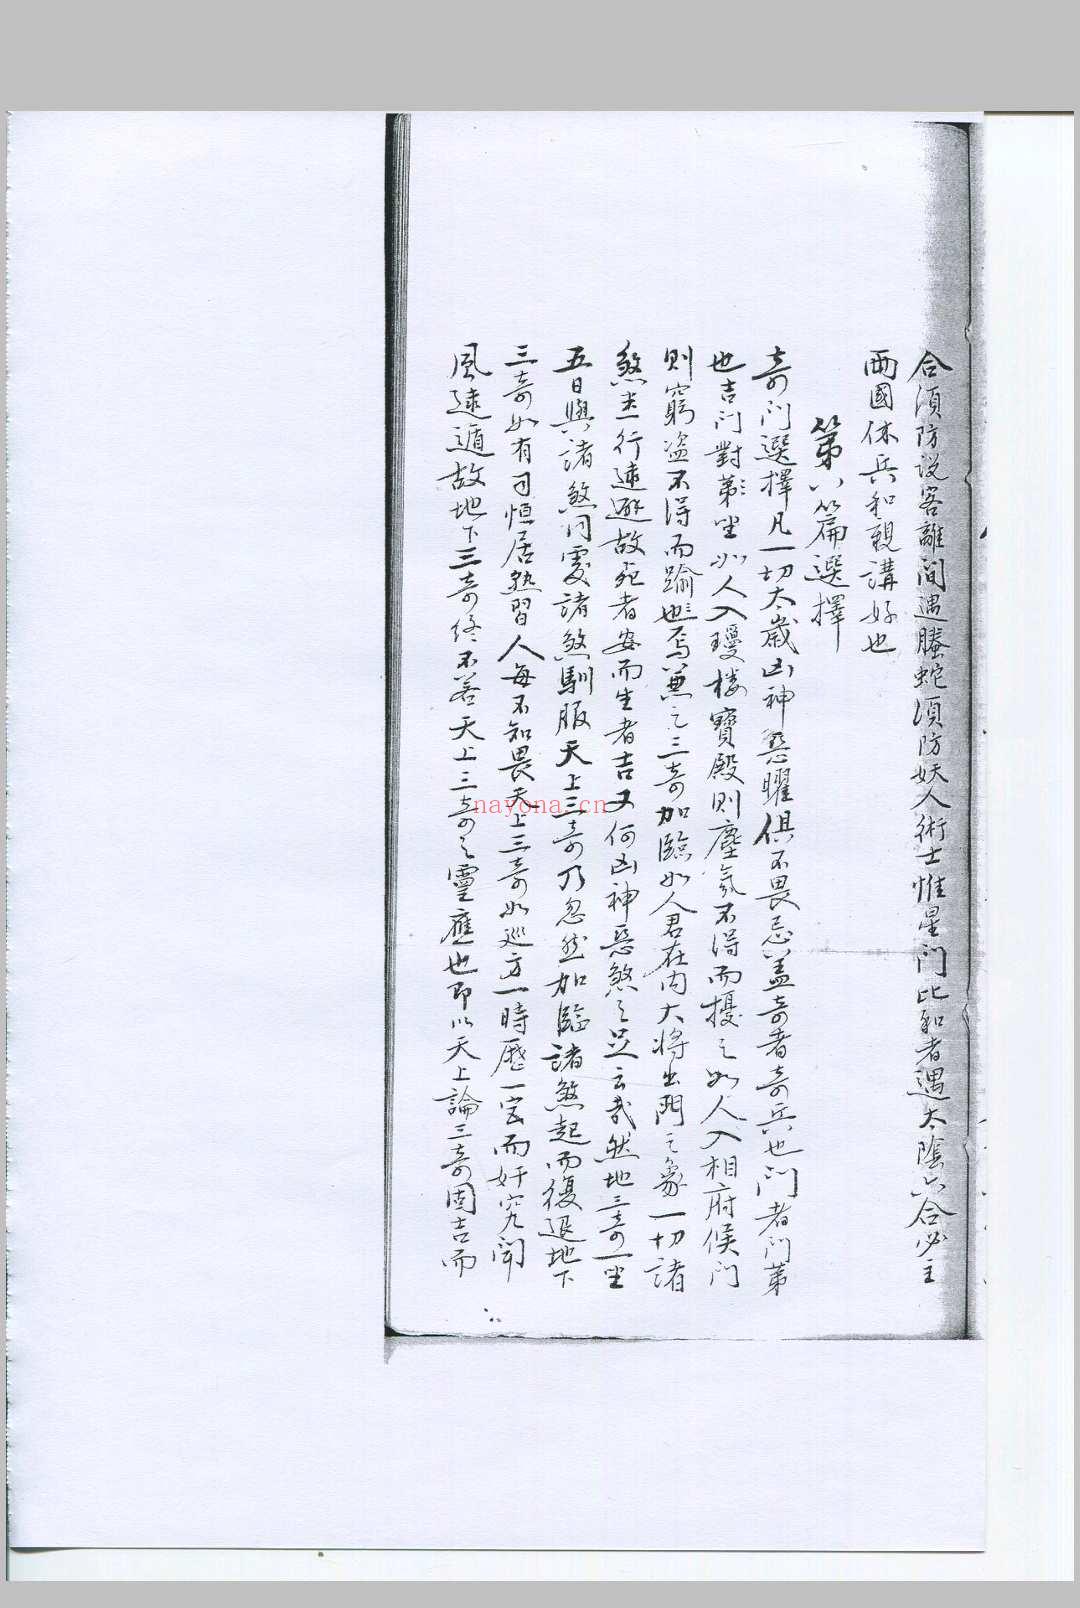 合須防说客離间遇螣蛇須防妖人術士惟星门比和者遇太陰六合必主
兩國休兵和親講好也
第八篇選擇
奇门選擇凡一切太歲凶神惡曜俱不畏忌盖奇者奇兵也门者门第
也吉门對坐如人入瓊楼寶殿則塵氛不得而擾之如人入相府侯门
則竊盗不得而踰也焉兼之三奇加臨如人君在内大将出門之象一切諸
煞隼行速避故死者安而生者吉又何凶神惡煞之足云哉然地三奇一坐
五日與諸煞同處諸煞馴服天上三奇乃忽然加臨諸煞起而復退地下
三奇如有司恒居熟習人每不知畏天上三奇如巡方一時歷一宫而奸宄聞
風速遁故地下三奇終不若天上三奇之靈應也即以天上論三奇固吉而
nayona.cn